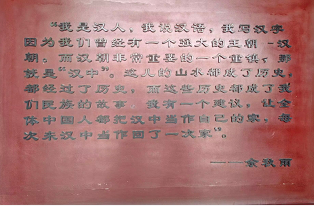 “我是汉人，我说汉语，我写汉字
因为我们曾经有一个强大的王朝—汉
朝。而汉朝非常重要的一个重镇，那
就是“汉中”。这儿的山水都成了历史，
都经过了历史，而这些历史都成了我
们民族的故事。我有一个建议，让全
体中国人都把汉中当作自己的家，每
次来汉中当作回了一次家”。
——余秋雨